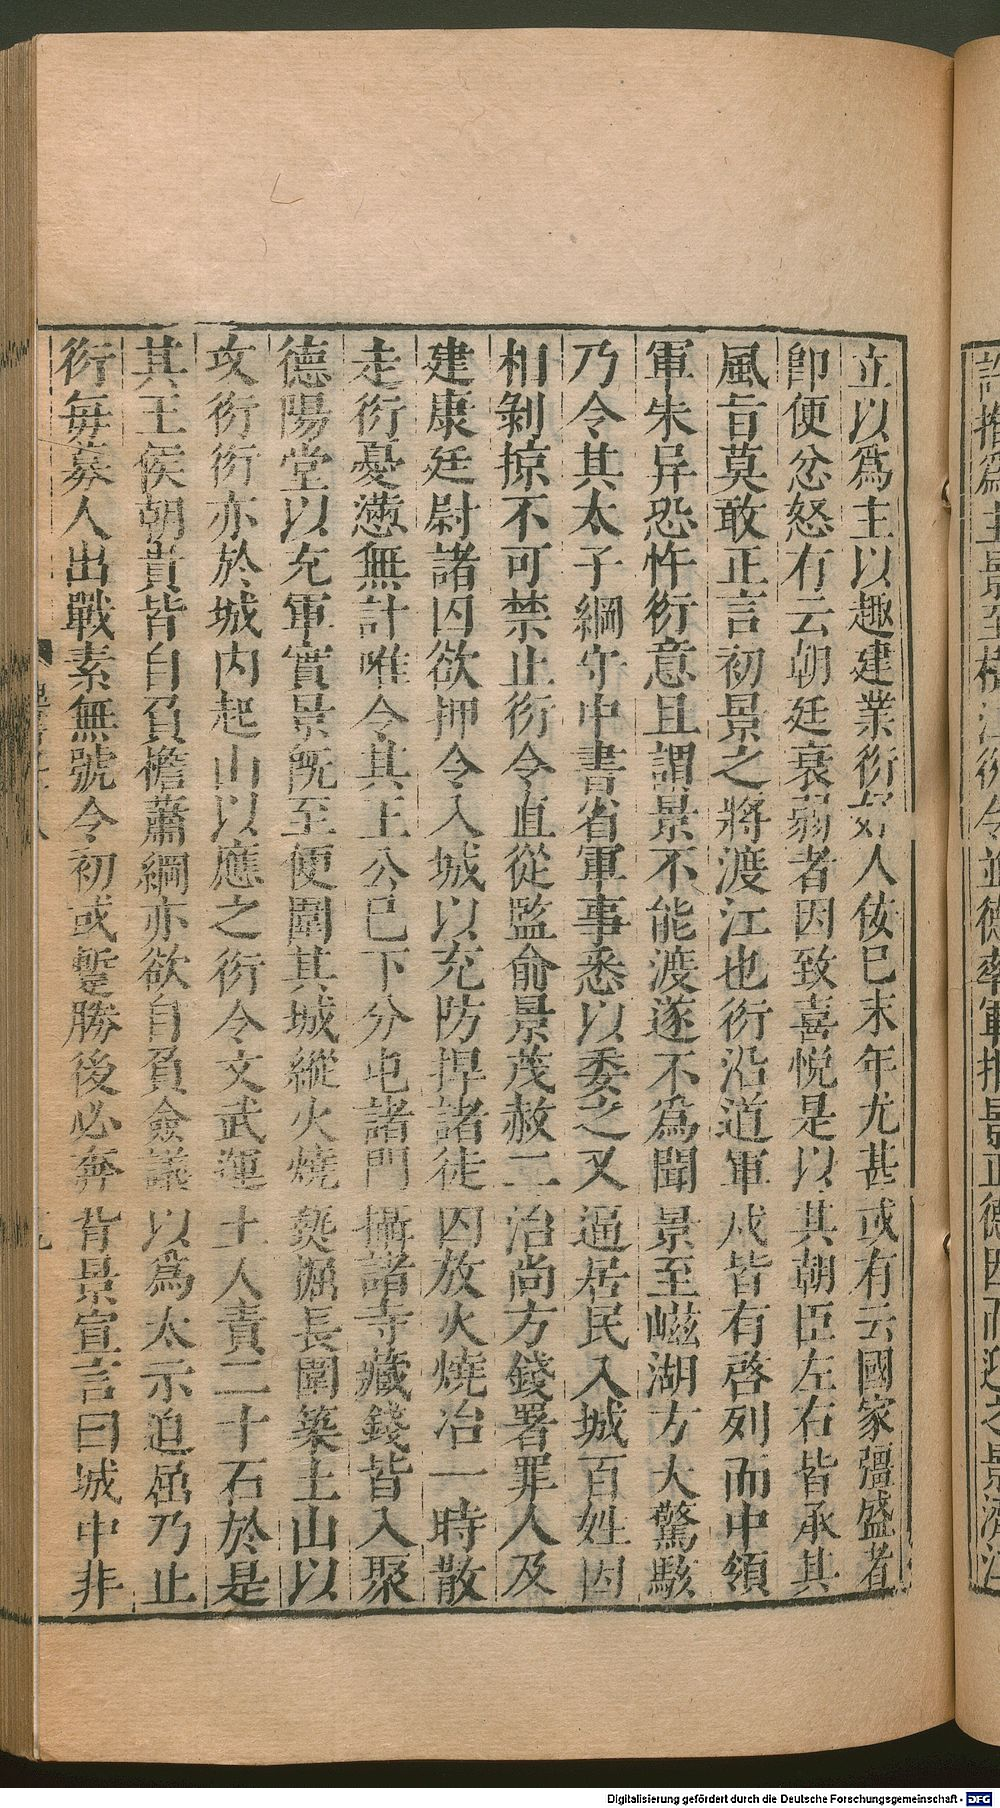 立以爲主以趣建業衍好人佞已末年尤甚或有云國家彊盛者
即便忿怒有云朝廷衰弱者因致喜悅是以其朝臣左右皆承其
風旨莫敢正言初景之將渡江也衍沿道軍戍皆有啓列而中領
軍朱异恐忤衍意且謂景不能渡遂不爲聞景至嵫湖方大驚駭
乃令其太子綱守中書省軍事悉以委之又逼居民入城百姓因
相剝掠不可禁止衍令直從監俞景茂赦二冶尚方錢署罪人及
建康廷尉諸囚欲押令入城以充防捍諸徒囚放火燒冶一時散
走衍憂懣無計唯令其王公已下分屯諸門攝諸寺藏錢皆入聚
德陽堂以充軍實景旣至便圍其城縱火燒𤏡掘長圍築土山以
攻衍衍亦於城内起山以應之衍令文武運土人責二十石於是
其王侯朝貴皆自負檐蕭綱亦欲自負僉議以爲太示迫屈乃止
衍每募人出戰素無號令初或蹔勝後必奔背景宣言曰城中非
Digitalisierung gefördert durch die Deutsche Forschungsgemeinschaft - DFG